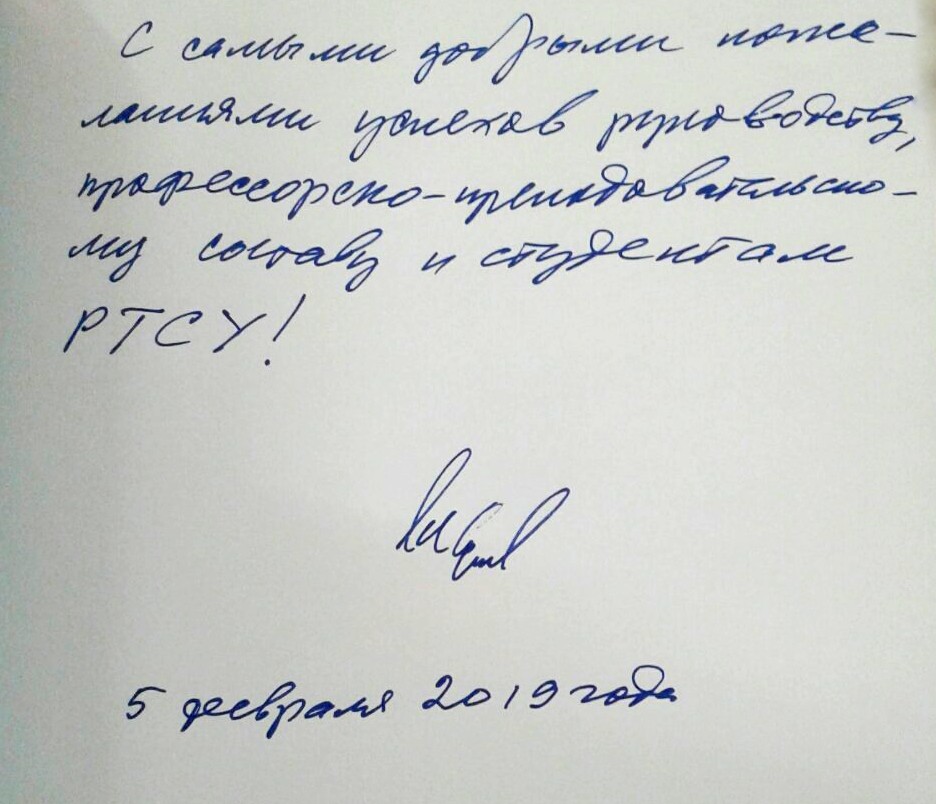 С самыми добрыми поже-
ланиями успехов руководству,
профессорско-преподавательско-
му составу и студентам
РТСУ!
5 февраля 2019 года